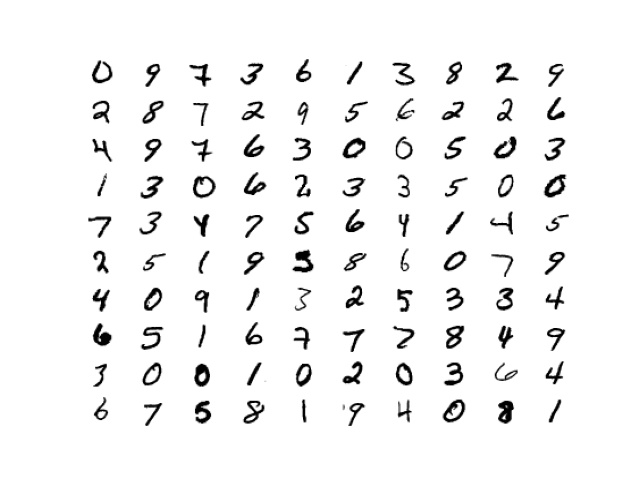 0 9 7 3 6 1 3 8 2 9
2 8 7 2 9 5 6 2 2 6
4 9 7 6 3 0 0 5 0 3
1 3 0 6 2 3 3 5 0 0
7 3 4 7 5 6 4 1 4 5
2 5 1 9 5 8 6 0 7 9
4 0 9 1 3 2 5 3 3 4
6 5 1 6 7 7 7 8 4 9
3 0 0 1 0 2 0 3 6 4
6 7 5 8 1 9 4 0 8 1